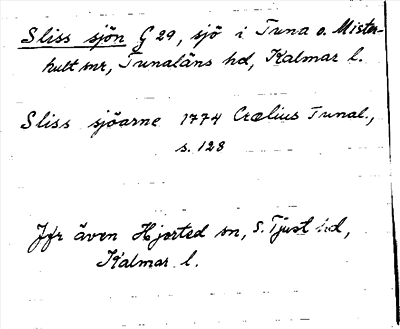 Sliss sjön G 29, sjö i Tuna o. Mister-
hult snr, Tunaläns hd, Kalmar l.
Sliss sjöarne 1774 Crælius Tunal.,
s. 128
Jfr även Hjorted sn, S. Tjust hd,
Kalmar l.